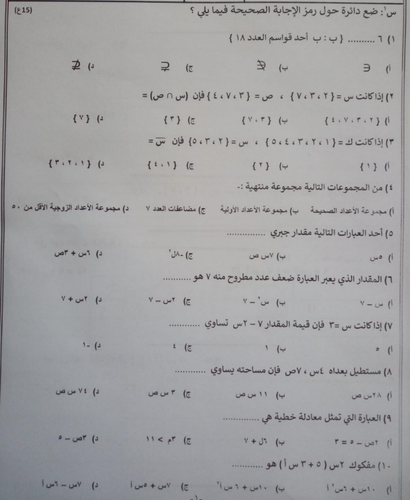 س١: ضع دائرة حول رمز الإجابة الصحيحة فيما يلي ؟ (١٥ع)
١) ٦ .......... { ب : ب أحد قواسم العدد ١٨ }
أ) ∈ ب) ∉ ج) ⊆ د) ⊄
٢) إذا كانت س = { ٢ ، ٣ ، ٧ } ، ص = { ٣ ، ٧ ، ٤ } فإن (س ∩ ص) =
أ) { ٢ ، ٣ ، ٧ ، ٤ } ب) { ٣ ، ٧ } ج) { ٣ } د) { ٧ }
٣) إذا كانت ك = { ١ ، ٢ ، ٣ ، ٤ ، ٥ } ، س = { ٢ ، ٣ ، ٥ } فإن س̅ =
أ) { ١ } ب) { ٢ } ج) { ٤ ، ١ } د) { ١ ، ٢ ، ٣ }
٤) من المجموعات التالية مجموعة منتهية :-
أ) مجموعة الأعداد الصحيحة ب) مجموعة الأعداد الأولية ج) مضاعفات العدد ٧ د) مجموعة الأعداد الزوجية الأقل من ٥٠
٥) أحد العبارات التالية مقدار جبري ..............
أ) ٥س ب) ٧س ص ج) -٨ل٢ د) ٦س + ٣ص
٦) المقدار الذي يعبر العبارة ضعف عدد مطروح منه ٧ هو ..........
أ) س - ٧ ب) س٢ - ٧ ج) ٢س - ٧ د) ٢س + ٧
٧) إذا كانت س = ٣ فإن قيمة المقدار ٧ - ٢س تساوي ..........
أ) ٥ ب) ١ ج) ٤ د) -١
٨) مستطيل بعداه ٤س ، ٧ص فإن مساحته يساوي ..........
أ) ٢٨س ص ب) ١١ س ص ج) ٣ س ص د) ٧٤ س ص
٩) العبارة التي تمثل معادلة خطية هي ............
أ) ٢ص - ٥ = ٣ ب) ٦ل + ٧ ج) ٣م > ١١ د) ٣ص - ٥
١٠) مفكوك ٢س ( ٥ + ٣س أ ) هو ..........
أ) ١٠س + ٦س٢ أ ب) ١٠س + ٦س أ٢ ج) ٧س + ٥س أ د) ٧س - ٦س أ